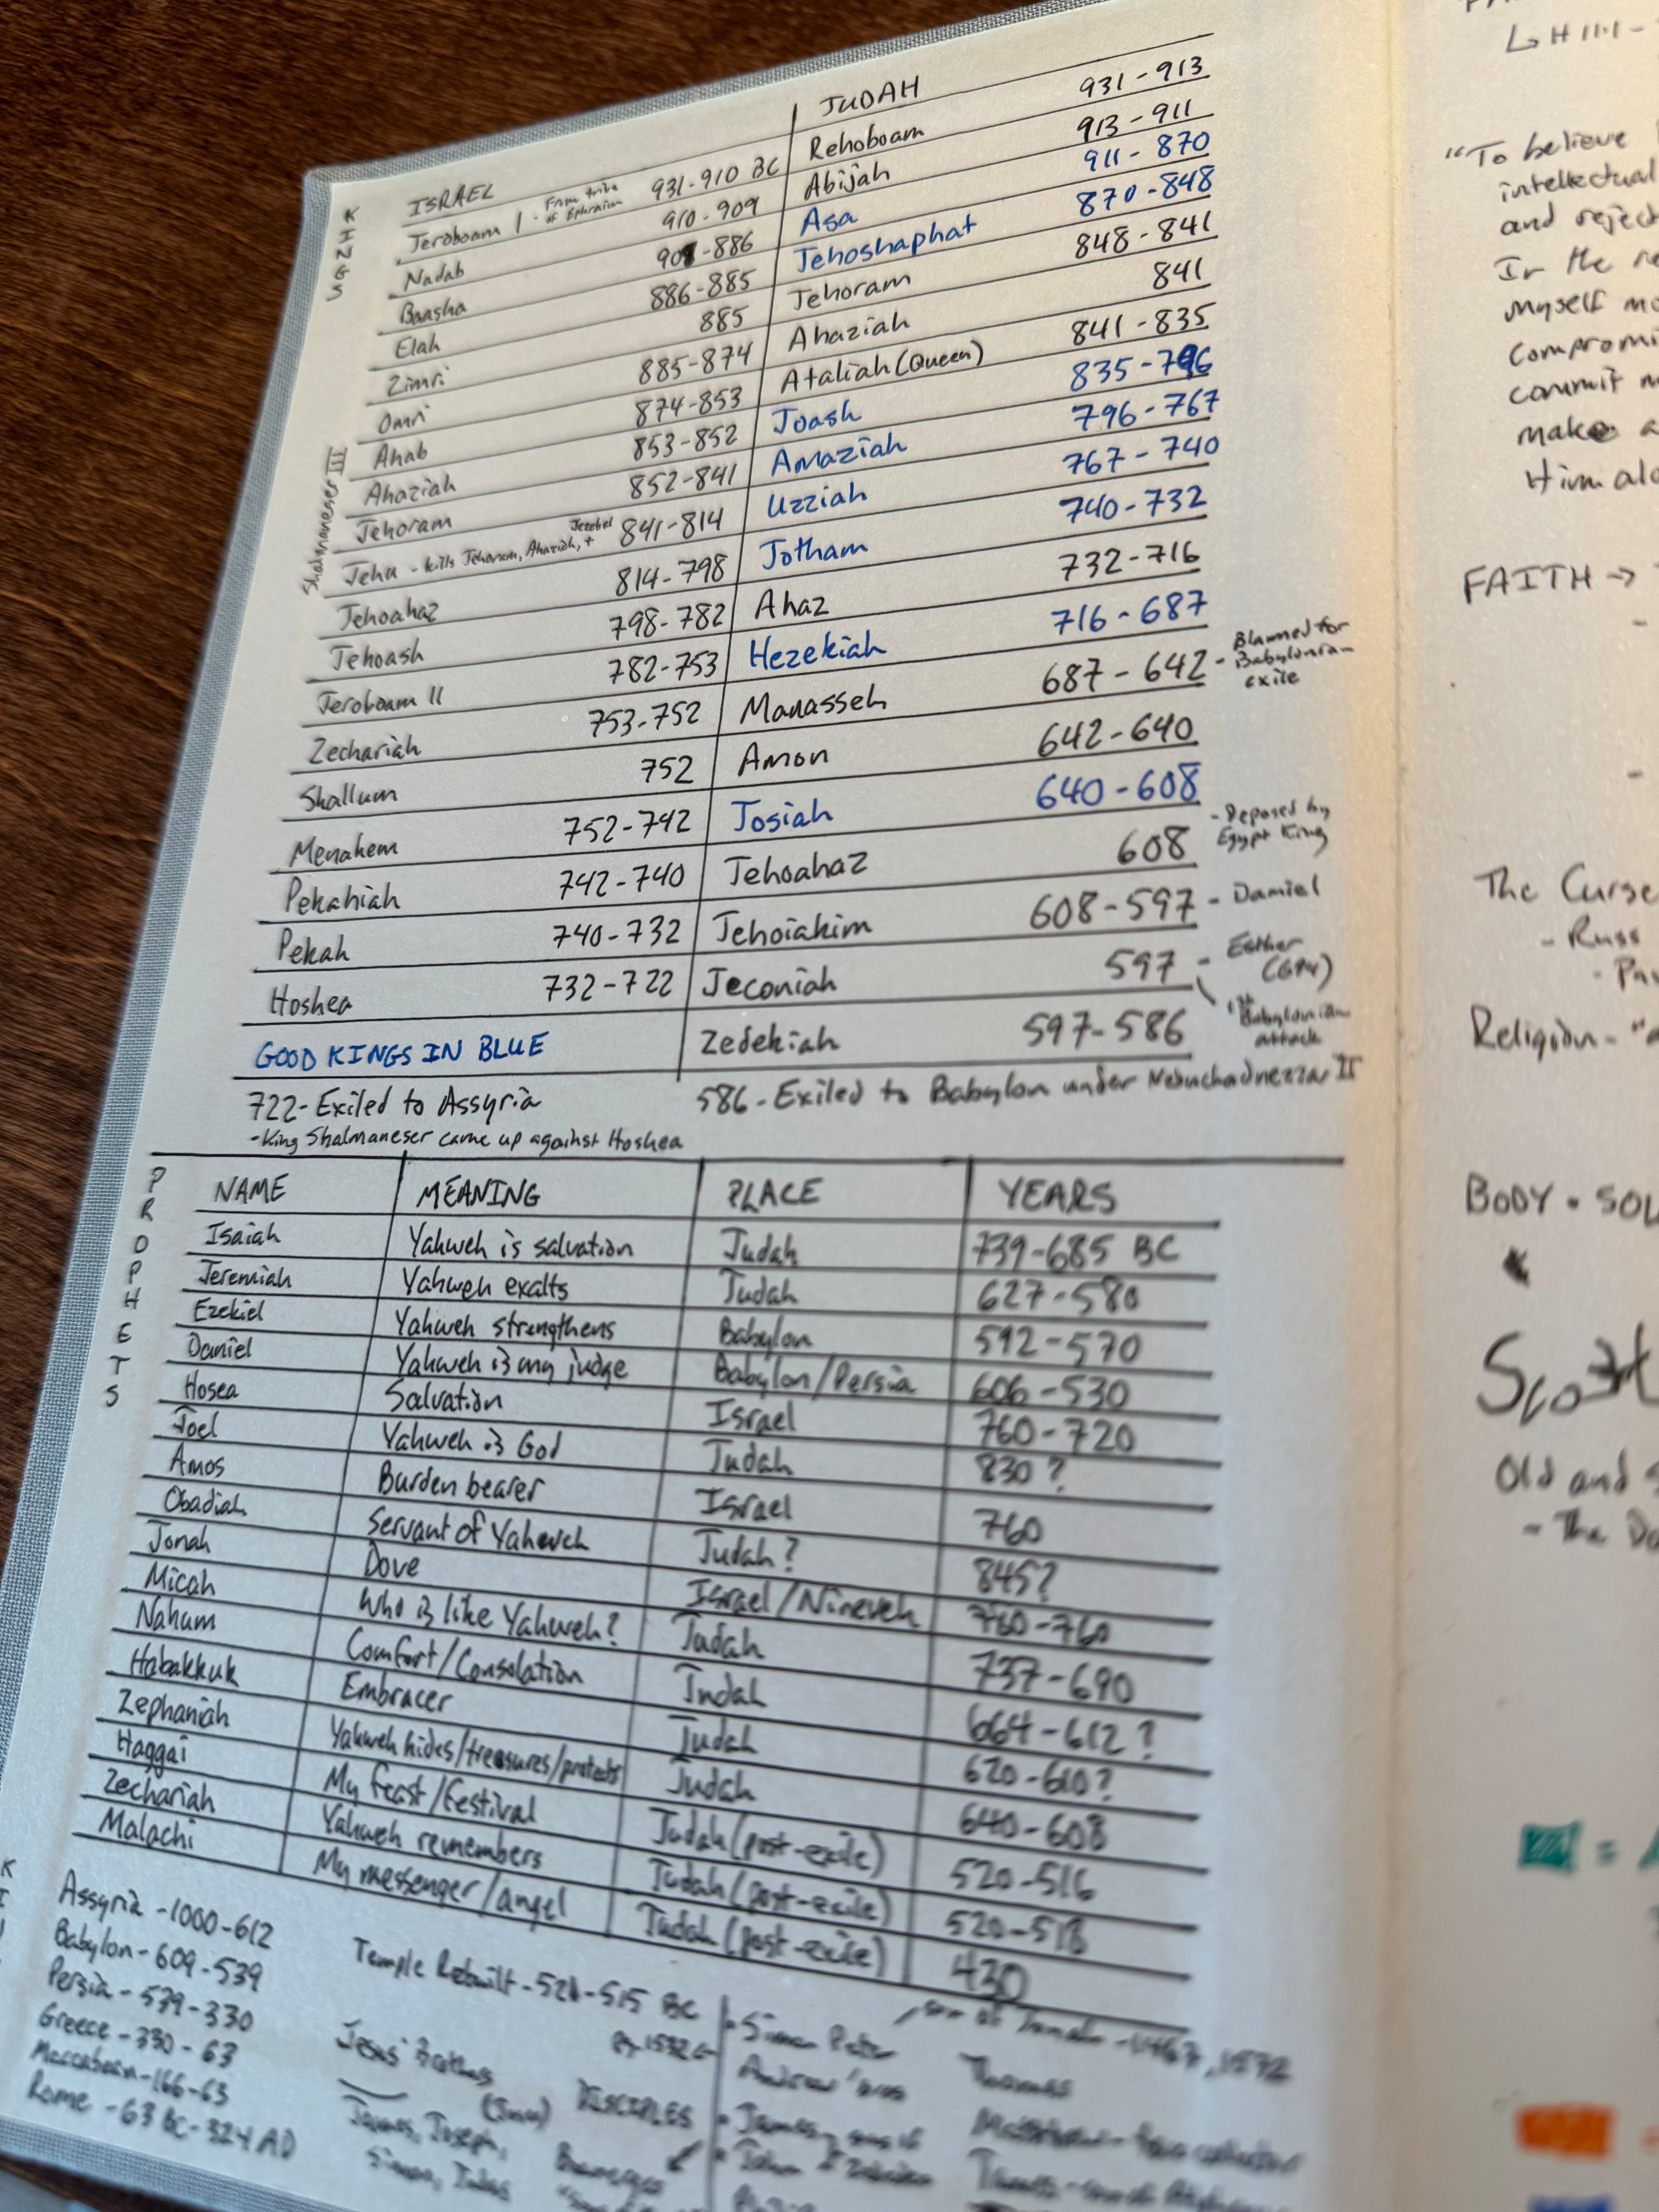 KINGS
ISRAEL
Jeroboam I - From tribe of Ephraim 931-910 BC
Nadab 910-909
Baasha 909-886
Elah 886-885
Zimri 885
Omri 885-874
Ahab 874-853
Ahaziah 853-852
Jehoram 852-841
Shalmaneser III
Jehu - kills Jehoram, Ahaziah, + Jezebel 841-814
Jehoahaz 814-798
Jehoash 798-782
Jeroboam II 782-753
Zechariah 753-752
Shallum 752
Menahem 752-742
Pekahiah 742-740
Pekah 740-732
Hoshea 732-722
GOOD KINGS IN BLUE
JUDAH
Rehoboam 931-913
Abijah 913-911
Asa 911-870
Jehoshaphat 870-848
Jehoram 848-841
Ahaziah 841
Ataliah (Queen) 841-835
Joash 835-796
Amaziah 796-767
Uzziah 767-740
Jotham 740-732
Ahaz 732-716
Hezekiah 716-687
Manasseh 687-642 - Blamed for Babylonian exile
Amon 642-640
Josiah 640-608
Jehoahaz 608 - Deposed by Egypt King
Jehoiakim 608-597 - Daniel
Jeconiah 597 - Esther
1st Babylonian attack
Zedekiah 597-586
722-Exiled to Assyria
-King Shalmaneser came up against Hoshea
586-Exiled to Babylon under Nebuchadnezzar II
PROPHETS
NAME MEANING PLACE YEARS
Isaiah Yahweh is salvation Judah 739-685 BC
Jeremiah Yahweh exalts Judah 627-580
Ezekiel Yahweh strengthens Babylon 592-570
Daniel Yahweh is my judge Babylon/Persia 606-530
Hosea Salvation Israel 760-720
Joel Yahweh is God Judah 830?
Amos Burden bearer Israel 760
Obadiah Servant of Yahweh Judah? 845?
Jonah Dove Israel/Nineveh 780-760
Micah Who is like Yahweh? Judah 737-690
Nahum Comfort/Consolation Judah 664-612?
Habakkuk Embracer Judah 620-610?
Zephaniah Yahweh hides/treasures/protects Judah 640-608
Haggai My feast/festival Judah (post-exile) 520-516
Zechariah Yahweh remembers Judah (post-exile) 520-518
Malachi My messenger/angel Judah (post-exile) 430
Assyria -1000-612
Babylon - 609-539
Persia - 539-330
Greece - 330-63
Maccabean-166-63
Rome - 63 BC-324 AD
Temple Rebuilt - 520-515 BC
Jesus' Brothers
James, Joseph,
Simon, Judas
DISCIPLES
Simon Peter
Andrew
James
John
Thomas
Matthew - tax collector
"To believe
intellectual
and reject
myself
commit
make a
Him alo
FAITH →
The Curse
- Russ
Religion - "a
BODY • SOU
Old and
- The Do